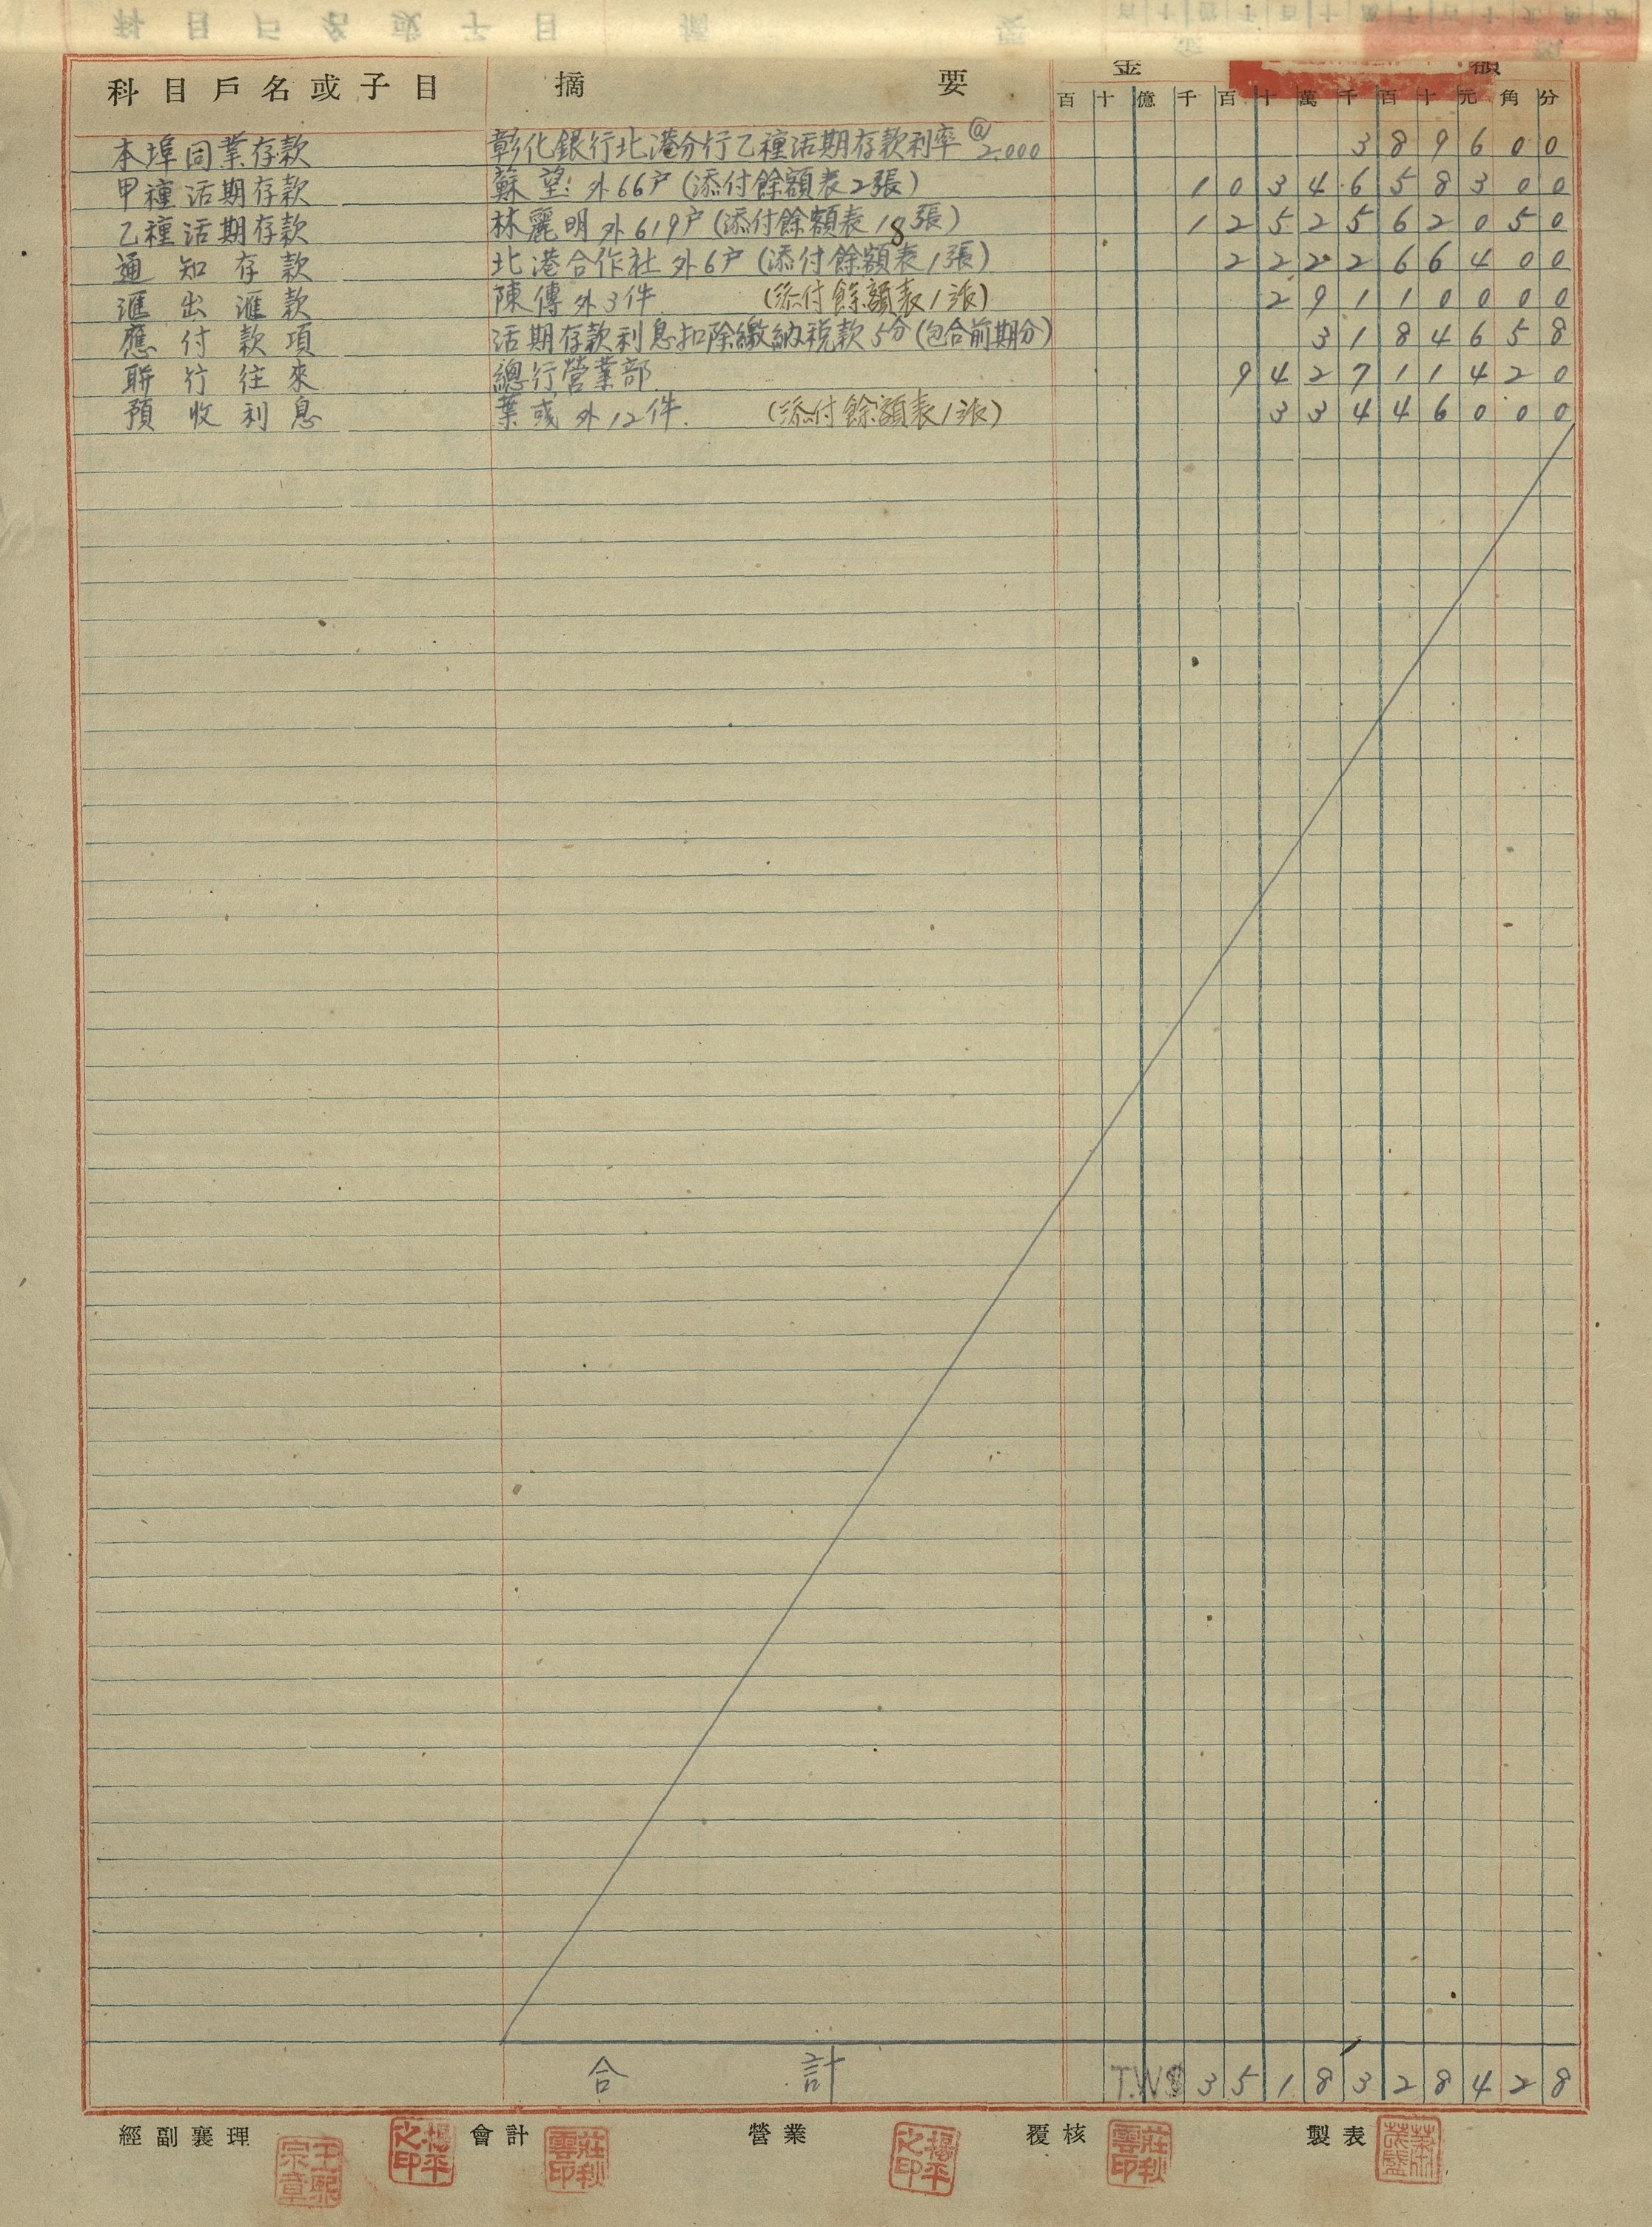 科目戶名或子目 摘要 金額
百十億千百十萬千百十元角分
本埠同業存款 彰化銀行北港分行乙種活期存款利率@2.000 3 8 9 6 0 0
甲種活期存款 蘇望外66户(添付餘額表2張) 1 0 3 4 6 5 8 3 0 0
乙種活期存款 林麗明外619户(添付餘額表18張) 1 2 5 2 5 6 2 0 5 0
通知存款 北港合作社外6户(添付餘額表1張) 2 2 2 2 6 6 4 0 0
滙出滙款 陳傳外3件 (添付餘額表1張) 2 9 1 1 0 0 0 0
應付款項 活期存款利息扣除繳納稅款5分(包合前期分) 3 1 8 4 6 5 8
聯行往來 總行營業部 9 4 2 7 1 1 4 2 0
預收利息 葉或外12件. (添付餘額表1張) 3 3 4 4 6 0 0 0
合計 T.W$ 3 5 1 8 3 2 8 4 2 8
經副襄理 會計 營業 覆核 製表
王熙宗章 楊平之印 莊秋雲印 楊平之印 莊秋雲印